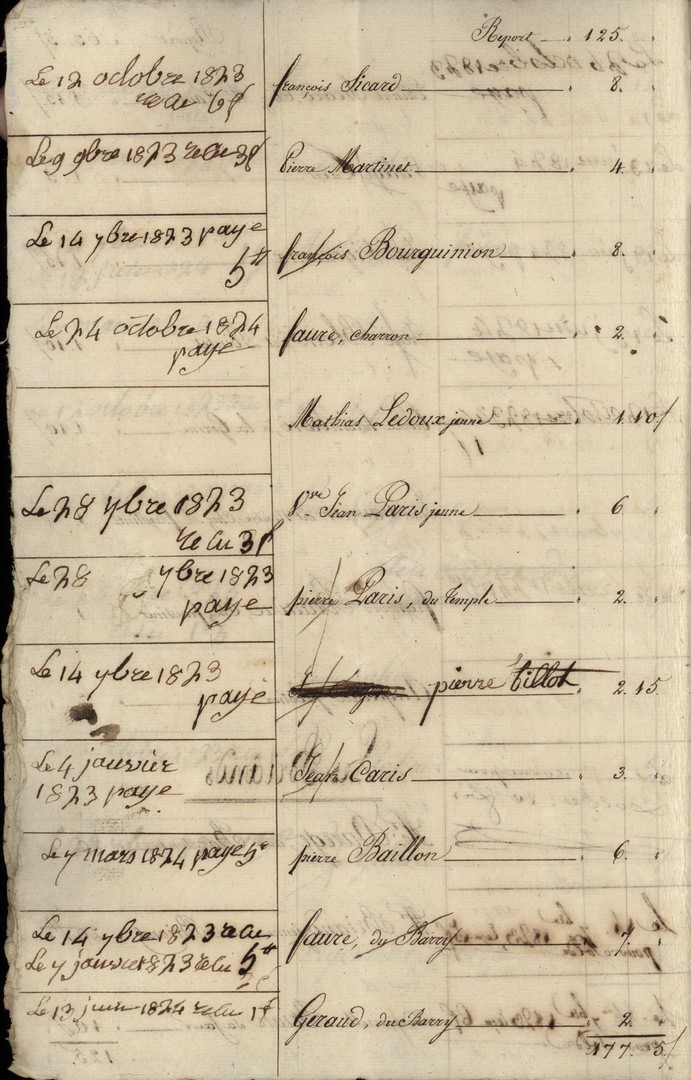 Report 125.
Le 12 octobre 1823
relu 6f
françois Sicard 8.
Le 9 9bre 1823 relu 3f
Pierre Martinet 4.
Le 14 7bre 1823 payé
5tt
françois Bourguinion 8.
Le 24 octobre 1824
payé
faure, charron 2.
Mathias Ledoux jeune 1.10f
Le 28 7bre 1823
relu 3f
Vve Jean Paris jeune 6
Le 28 7bre 1823
payé
pierre Paris, du Temple 2.
Le 14 7bre 1823
payé
pierre Tillot 2.15
Le 4 janvier
1823 payé
Jean Caris 3.
Le 7 mars 1824 payé
pierre Baillon 6.
Le 14 7bre 1823 relu
5tt
Le 7 janvier 1823 relu
faure, du Barry 7.
Le 13 juin 1824 relu 1f
Geraud, du Barry 2
177. 5f